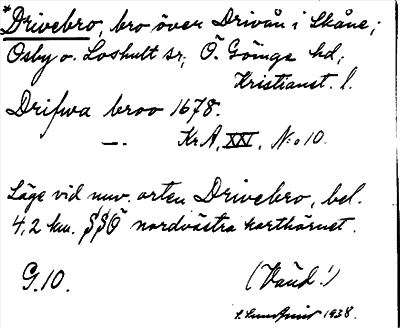 *Drivebro, bro över Drivån i Skåne;
Osby o. Loshult sr, Ö. Göinge hd,
Kristianst. l.
Drifwa broo 1678.
—. Kr.A, XXI, N:o 10.
Läge vid nuv. orten Drivebro, bel.
4,2 km. SSÖ nordvästra karthörnet.
G.10. (Vänd!)
1938.